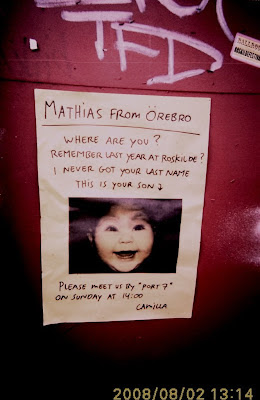 TFD
MATHIAS FROM ÖREBRO
WHERE ARE YOU?
REMEMBER LAST YEAR AT ROSKILDE?
I NEVER GOT YOUR LAST NAME
THIS IS YOUR SON
PLEASE MEET US BY "PORT 7"
ON SUNDAY AT 14:00
CAMILLA
2008/08/02 13:14